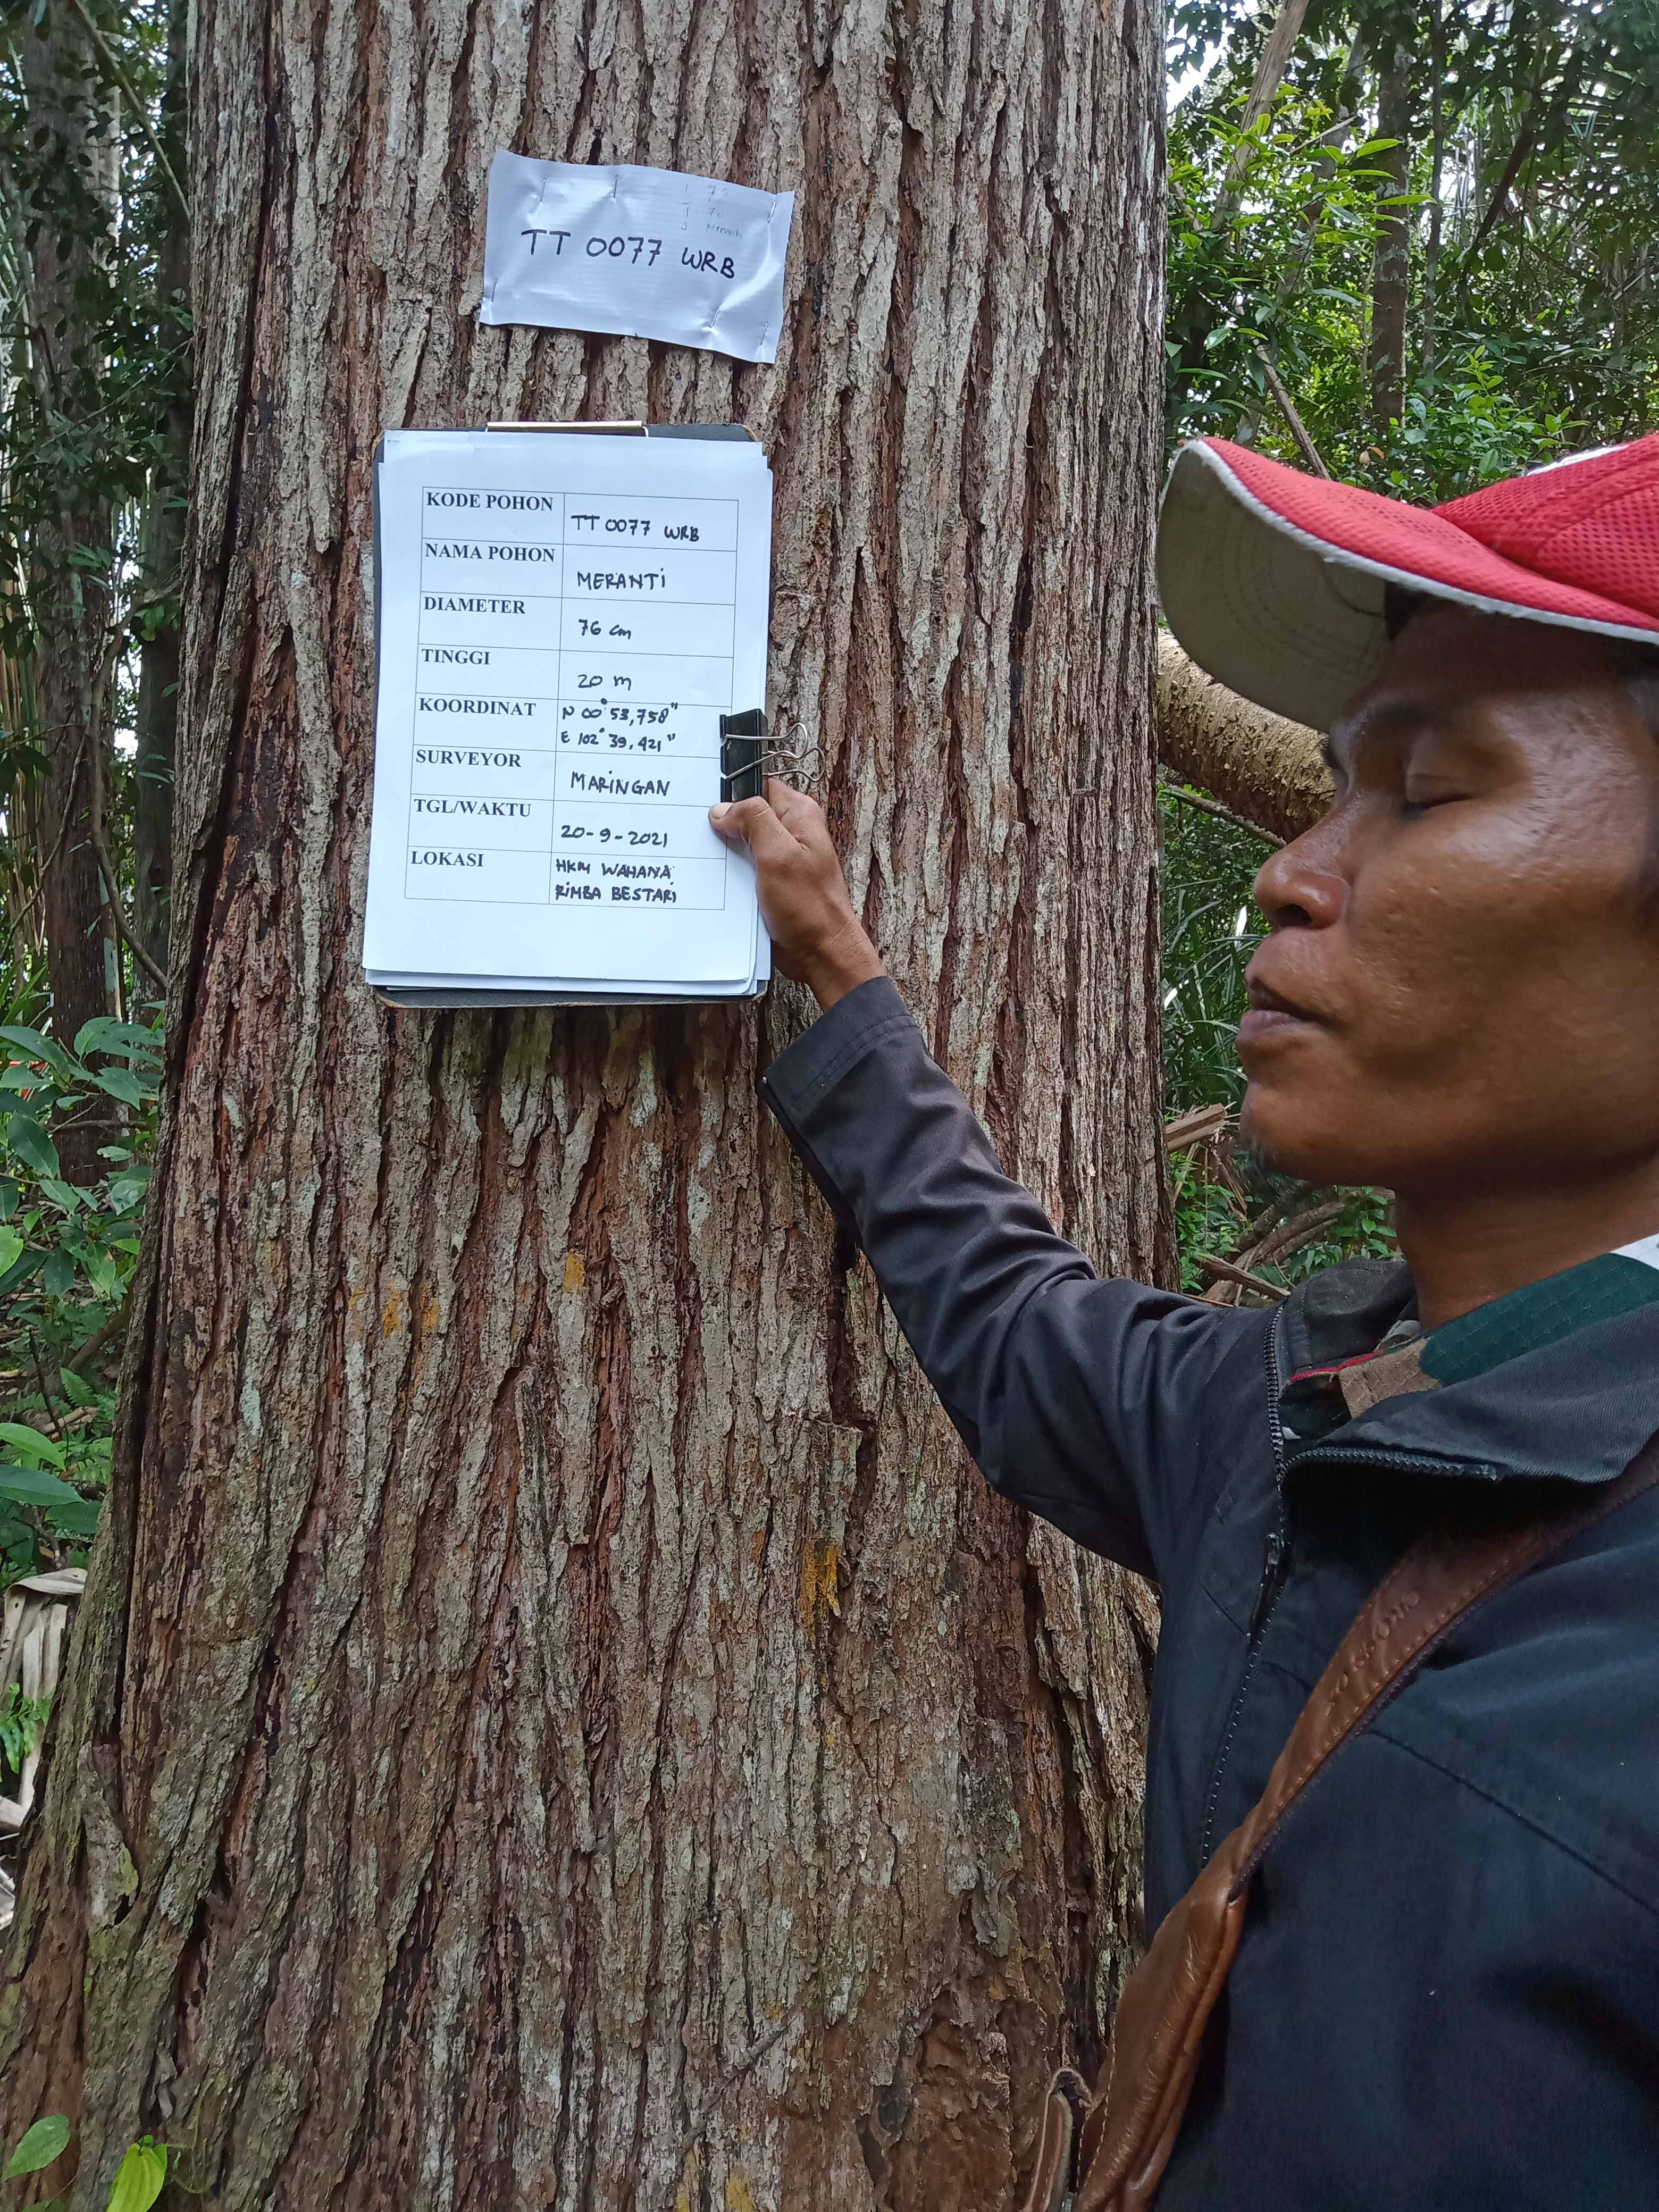 TT 0077 WRB
KODE POHON
TT 0077 WRB
NAMA POHON
MERANTI
DIAMETER
76 cm
TINGGI
20 m
KOORDINAT
N 00° 53,758"
E 102° 39,421"
SURVEYOR
MARINGAN
TGL/WAKTU
20-9-2021
LOKASI
HKM WAHANA
RIMBA BESTARI